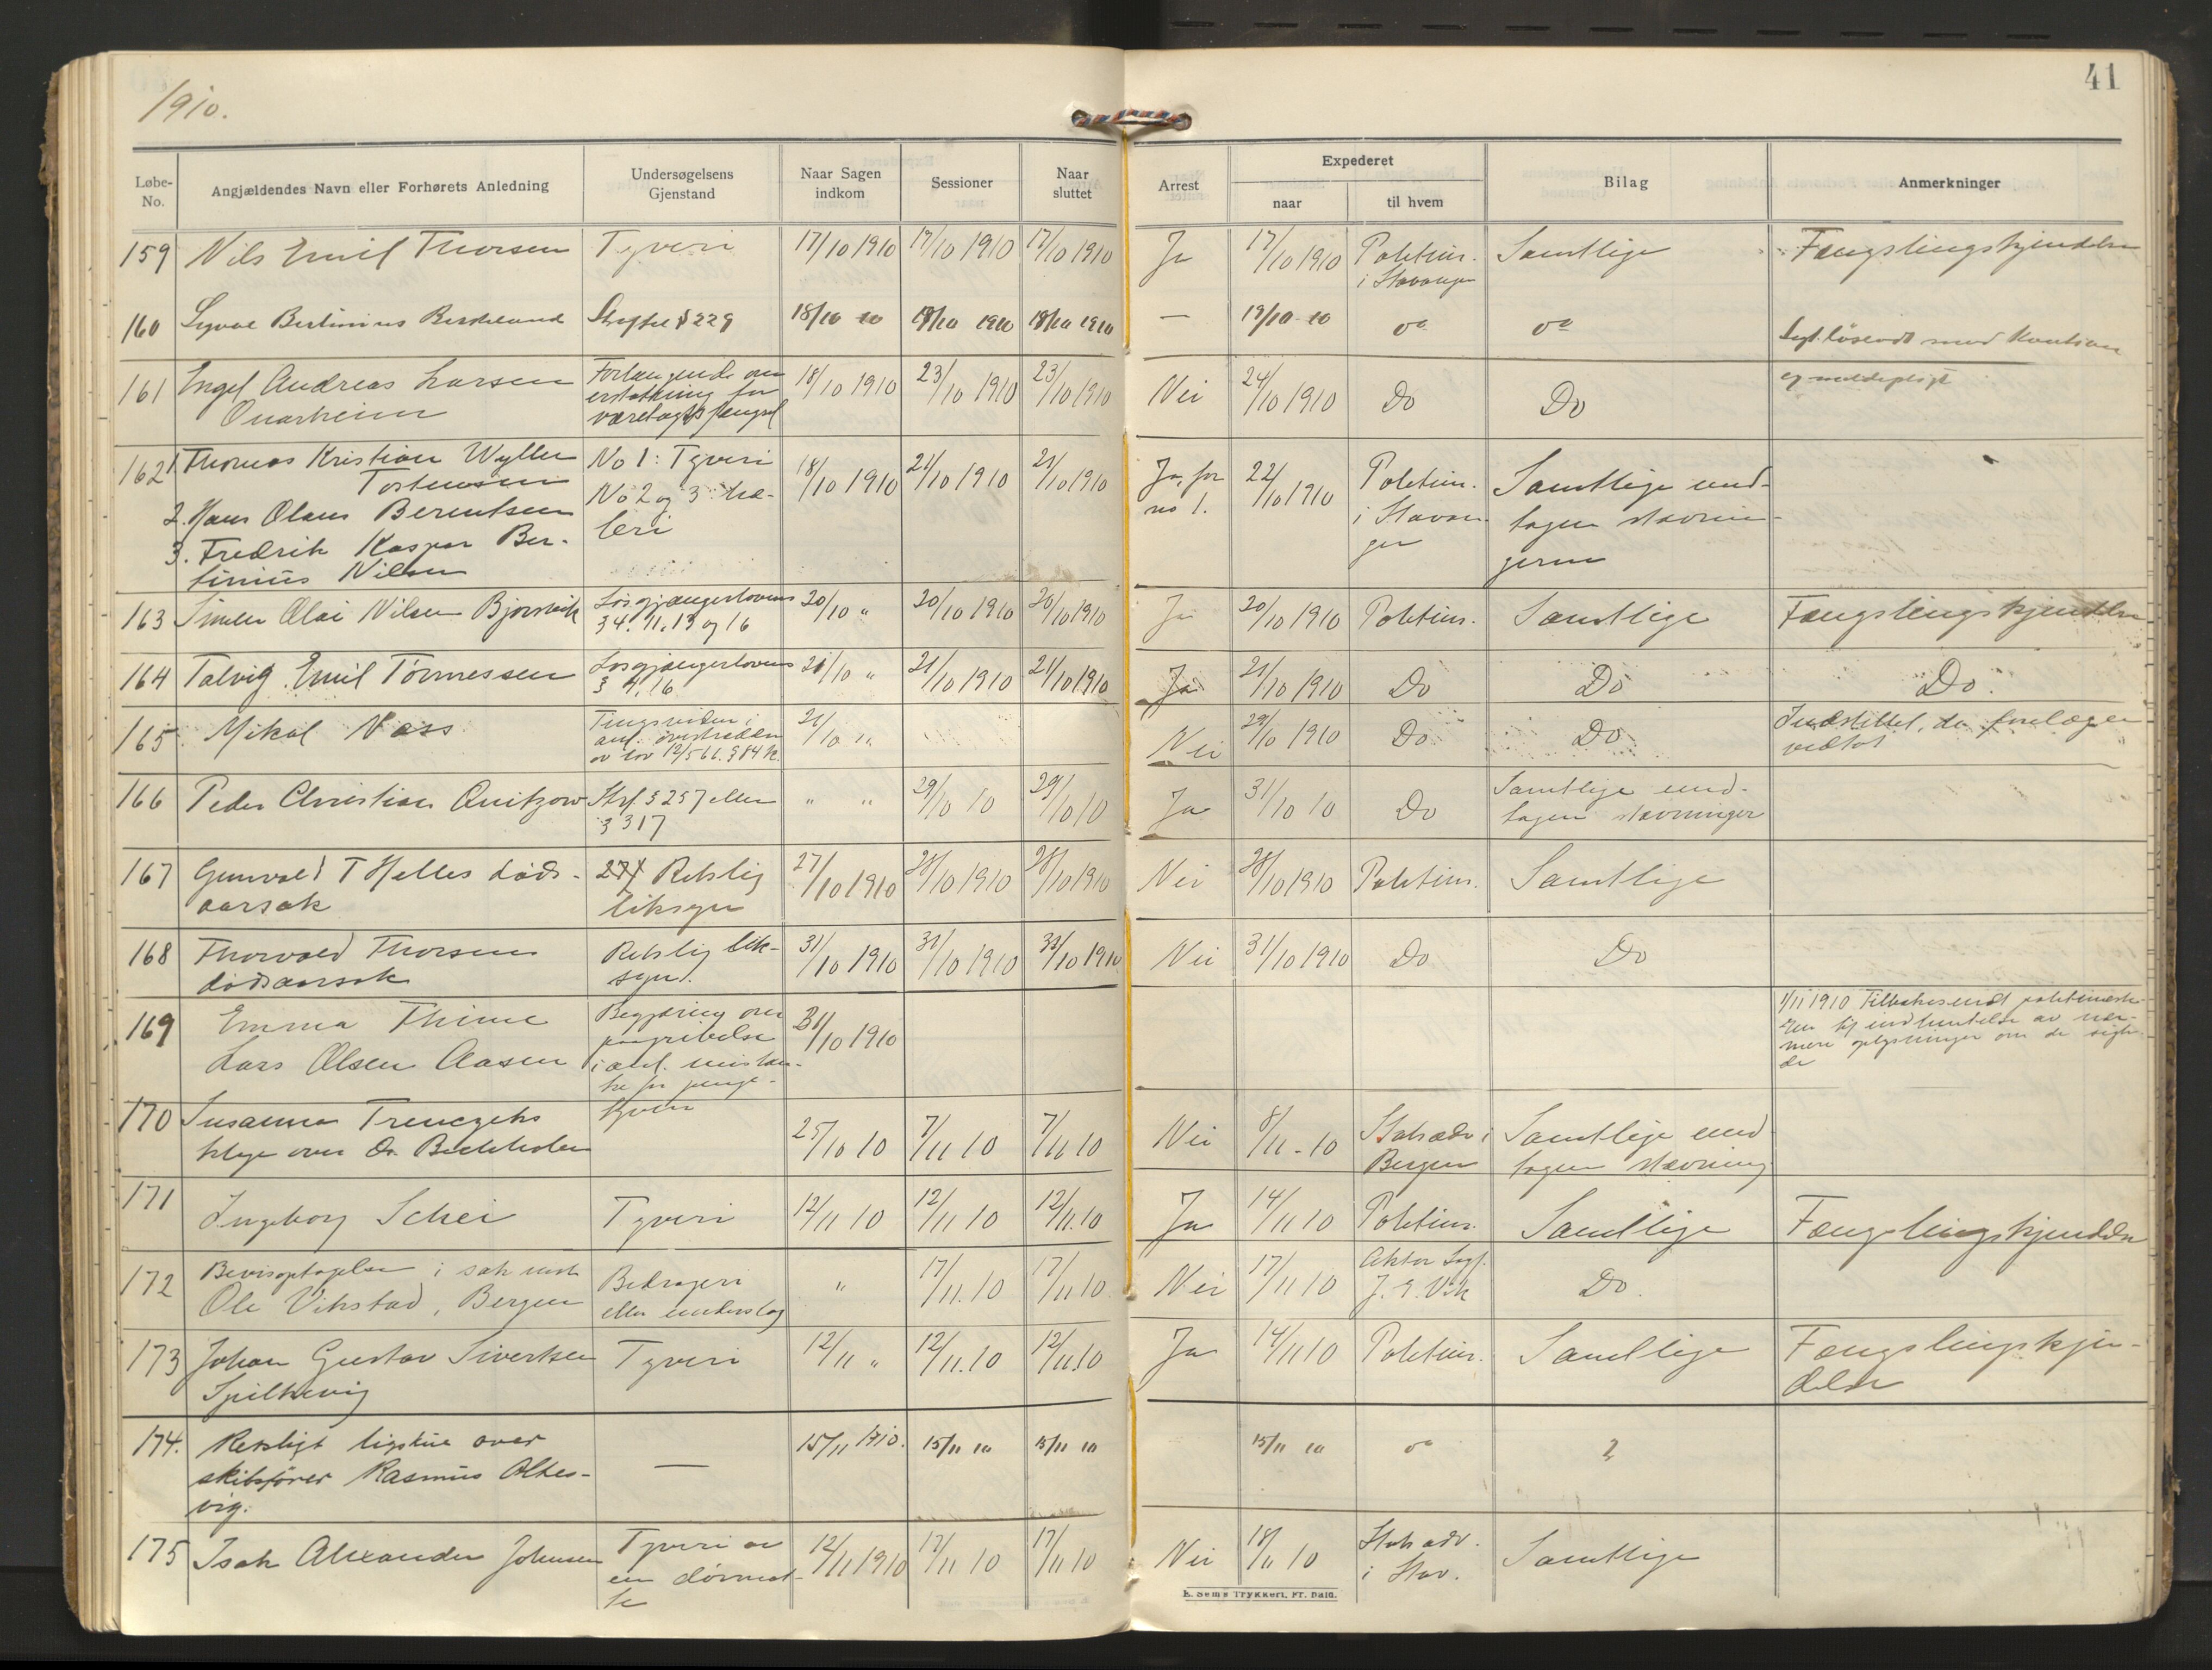 1910.
41
Løbe-No. Angjældendes Navn eller Forhørets Anledning Undersøgelsens Gjenstand Naar Sagen indkom Sessioner Naar sluttet Arrest Expederet naar til hvem Bilag Anmerkninger
159 Nils Emil Thorsen Tyveri 17/10 1910 17/10 1910 17/10 1910 Ja 17/10 1910 Politim. Samtlige Fængslingskjendelse
i Stavanger
160 18/10 10 18/10 1910 18/10 1910 — 19/10 10 do do
§ 229
161 Engel Andreas Larsen Forlangende om 18/10 1910 23/10 1910 23/10 1910 Nei 24/10 1910 Do Do
Qvarheim erstatning for
varetægtsfængsel
162 1. Thomas Kristian Wyller No 1: Tyveri 18/10 1910 21/10 1910 21/10 1910 Ja, for 22/10 1910 Politim. Samtlige und-
Torstensen No 2 og 3 hæ- no 1. i Stavan- tagen stævnin-
2. Hans Olaus Berentsen leri ger gerne
3. Fredrik Kasper Ber-
tinius Nilsen
163 Simen Olai Nilsen Bjørsvik Løsgjængerlovens 20/10 " 20/10 1910 20/10 1910 Ja 20/10 1910 Politim. Samtlige Fængslingskjendelse
§ 4. 11, 13 og 16
164 Talvig Emil Tørmessen Løsgjængerlovens 21/10 " 21/10 1910 21/10 1910 Ja 21/10 1910 Do Do Do.
§ 4, 16
165 Mikal Næss Tingsvidne i 21/10 " Nei 29/10 1910 Do Do Indstillet, da forelæggen
anl. overtrædelse vedtat
av lov 12/5 66. § 84 k.
166 Peder Christian Quitzow Strl. § 257 eller " " 29/10 10 29/10 10 Ja 31/10 10 Do Samtlige und-
§ 317 tagen stævninger
167 Gunvald T Helles døds- Retslig 27/10 1910 28/10 1910 28/10 1910 Nei 28/10 1910 Politim. Samtlige
aarsak liksyn
168 Thorvald Thorsens Retslig lik- 31/10 1910 31/10 1910 31/10 1910 Nei 31/10 1910 Do Do
dødsaarsak syn.
169 Emma Thime Begjæring om 31/10 1910 1/11 1910 Tilbakesendt politimeste-
Lars Olsen Aasen paagribelse ren til indhentelse av nær-
i anl. mistan- mere oplysninger om de sigte-
ke for penge- de
tyveri
170 Susanna Trenczeks 25/10 10 7/11 10 7/11 10 Nei 8/11 - 10 Statsadv i Samtlige und-
klage over Dr. Bergen tagen stævning
171 Ingeborg Schei Tyveri 12/11 10 12/11 10 12/11.10 Ja 14/11 10 Politim. Samtlige Fængslingskjendelse
172 Bevisoptagelse i sak mot Bedrageri " 17/11.10 17/11 10 Nei 17/11 10 Aktor Sagf. Do.
Ole Vikstad, Bergen eller underslag J. E. Vik
173 Johan Gustav Sivertsen Tyveri 12/11 " 12/11.10 12/11.10 Ja 14/11 10 Politim. Samtlige Fængslingskjen-
Spilkevig delse
174. Retsligt ligskue over — 15/11 1910. 15/11 10 15/11 10 15/11 10 do 2
skibsfører Rasmus Alkes-
vig.
175 Isak Alexander Johnsen Tyveri av 12/11 1910 17/11 10 17/11 10 Nei 18/11 10 Statsadv. Samtlige
en dørmat- i Stav.
te
E. Sem's Trykkeri, Fr. hald.